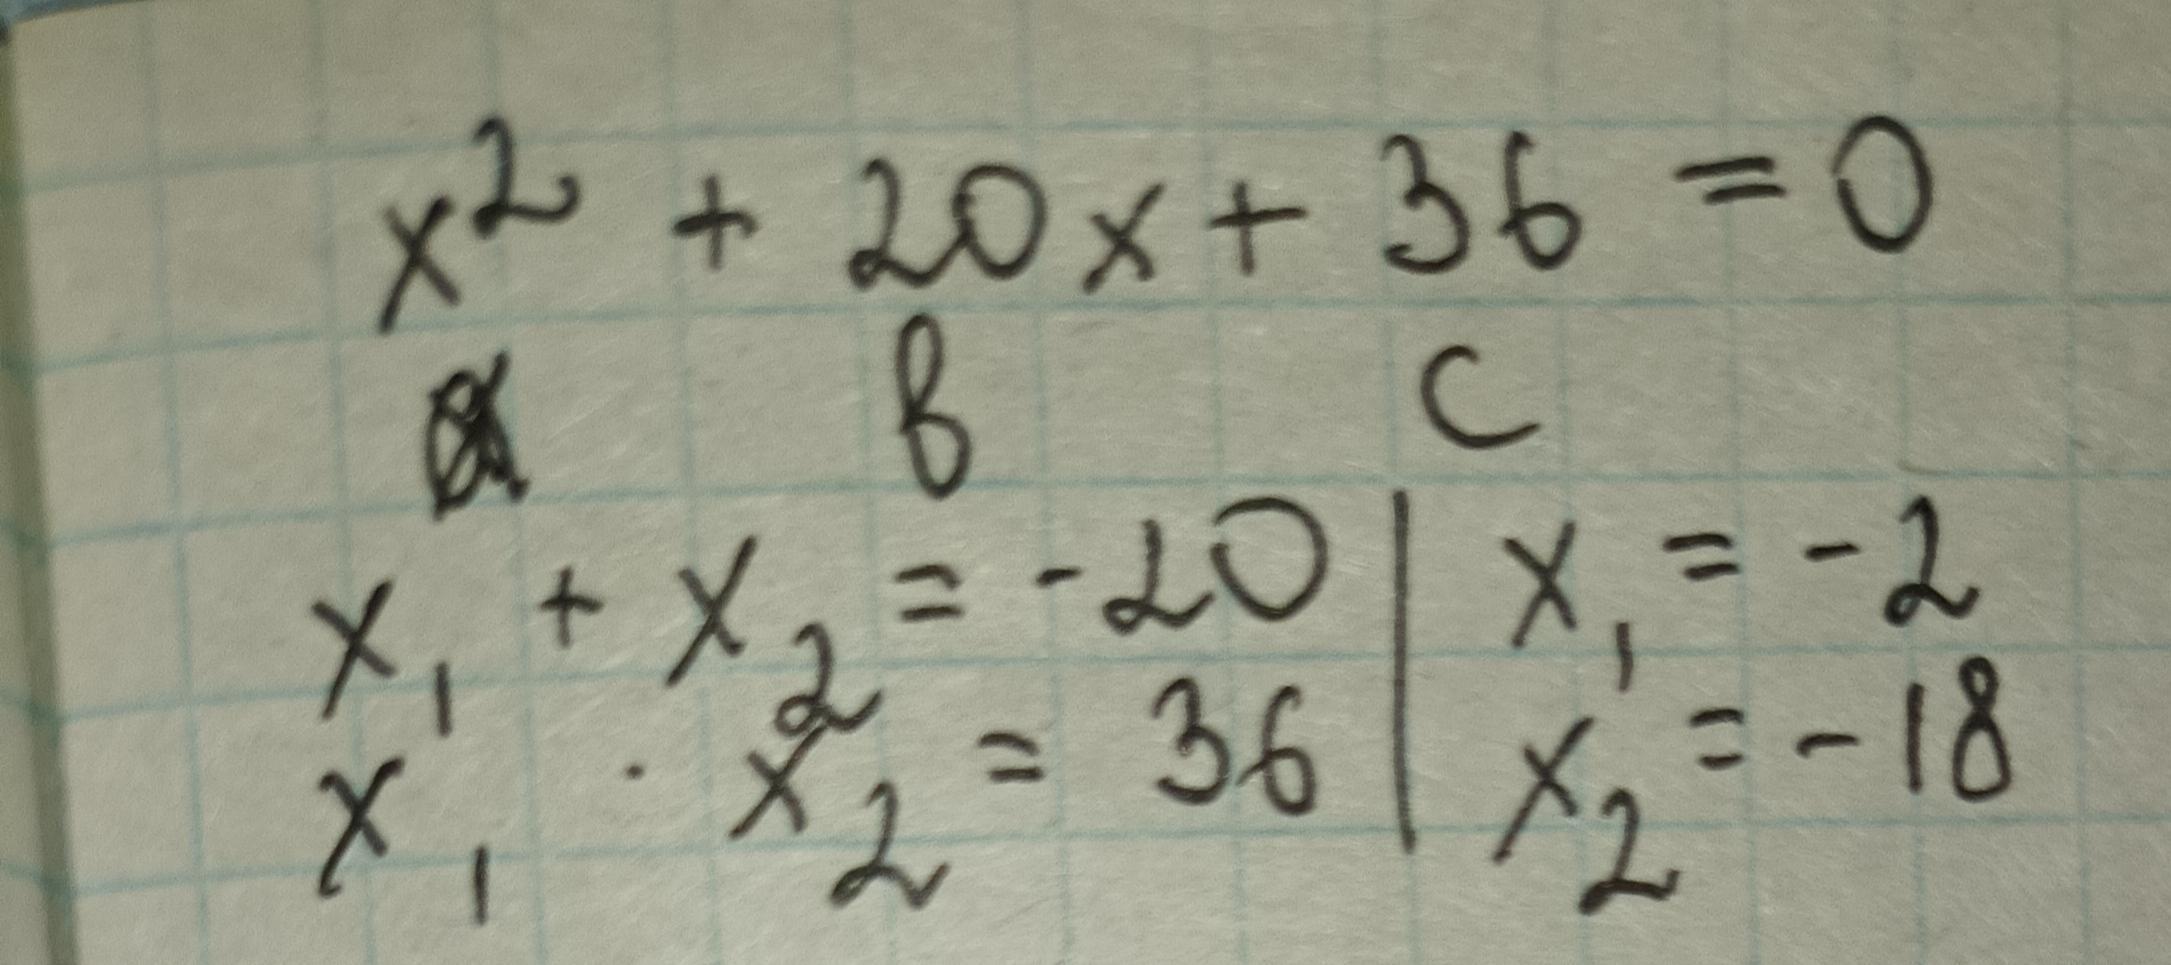 x² + 20x + 36 = 0
a b c
x₁ + x₂ = -20 | x₁ = -2
x₁ · x₂ = 36 | x₂ = -18